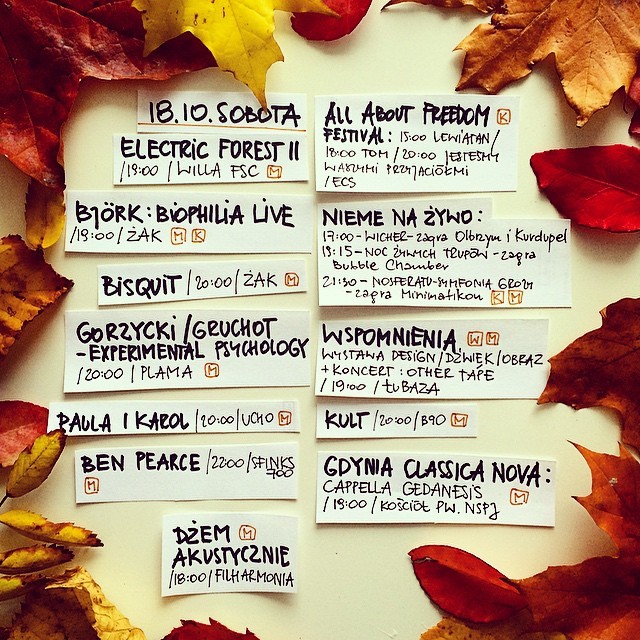 18.10. SOBOTA
ELECTRIC FOREST II
/19:00 / WILLA FSC M
BJÖRK: BIOPHILIA LIVE
/19:00 / ŻAK M K
BISQUIT /20:00/ŻAK M
GORZYCKI/GRUCHOT
-EXPERIMENTAL PSYCHOLOGY
/20:00 / PLAMA M
PAULA I KAROL /20:00/UCHO M
BEN PEARCE /22:00/SFINKS
700
M
DŻEM M
AKUSTYCZNIE
/18:00/FILHARMONIA
ALL ABOUT FREEDOM K
FESTIVAL: 15:00 LEWIATAN/
18:00 TOM / 20:00 JESTEŚMY
WASZYMI PRZYJACIÓŁMI
/ECS
NIEME NA ŻYWO:
17:00 - WICHER - zagra Olbrzym i Kurdupel
19:15 - NOC ŻYWYCH TRUPÓW - zagra
Bubble Chamber
21:30 - NOSFERATU - SYMFONIA GROZY
- zagra Minimatikon K M
WSPOMNIENIA W M
WYSTAWA DESIGN/DŹWIĘK/OBRAZ
+ KONCERT: OTHER TAPE
/ 19:00 / ŁUBAZA
KULT /20:00/B90 M
GDYNIA CLASSICA NOVA:
CAPPELLA GEDANESIS M
/ 19:00 / KOŚCIÓŁ PW. NSPJ